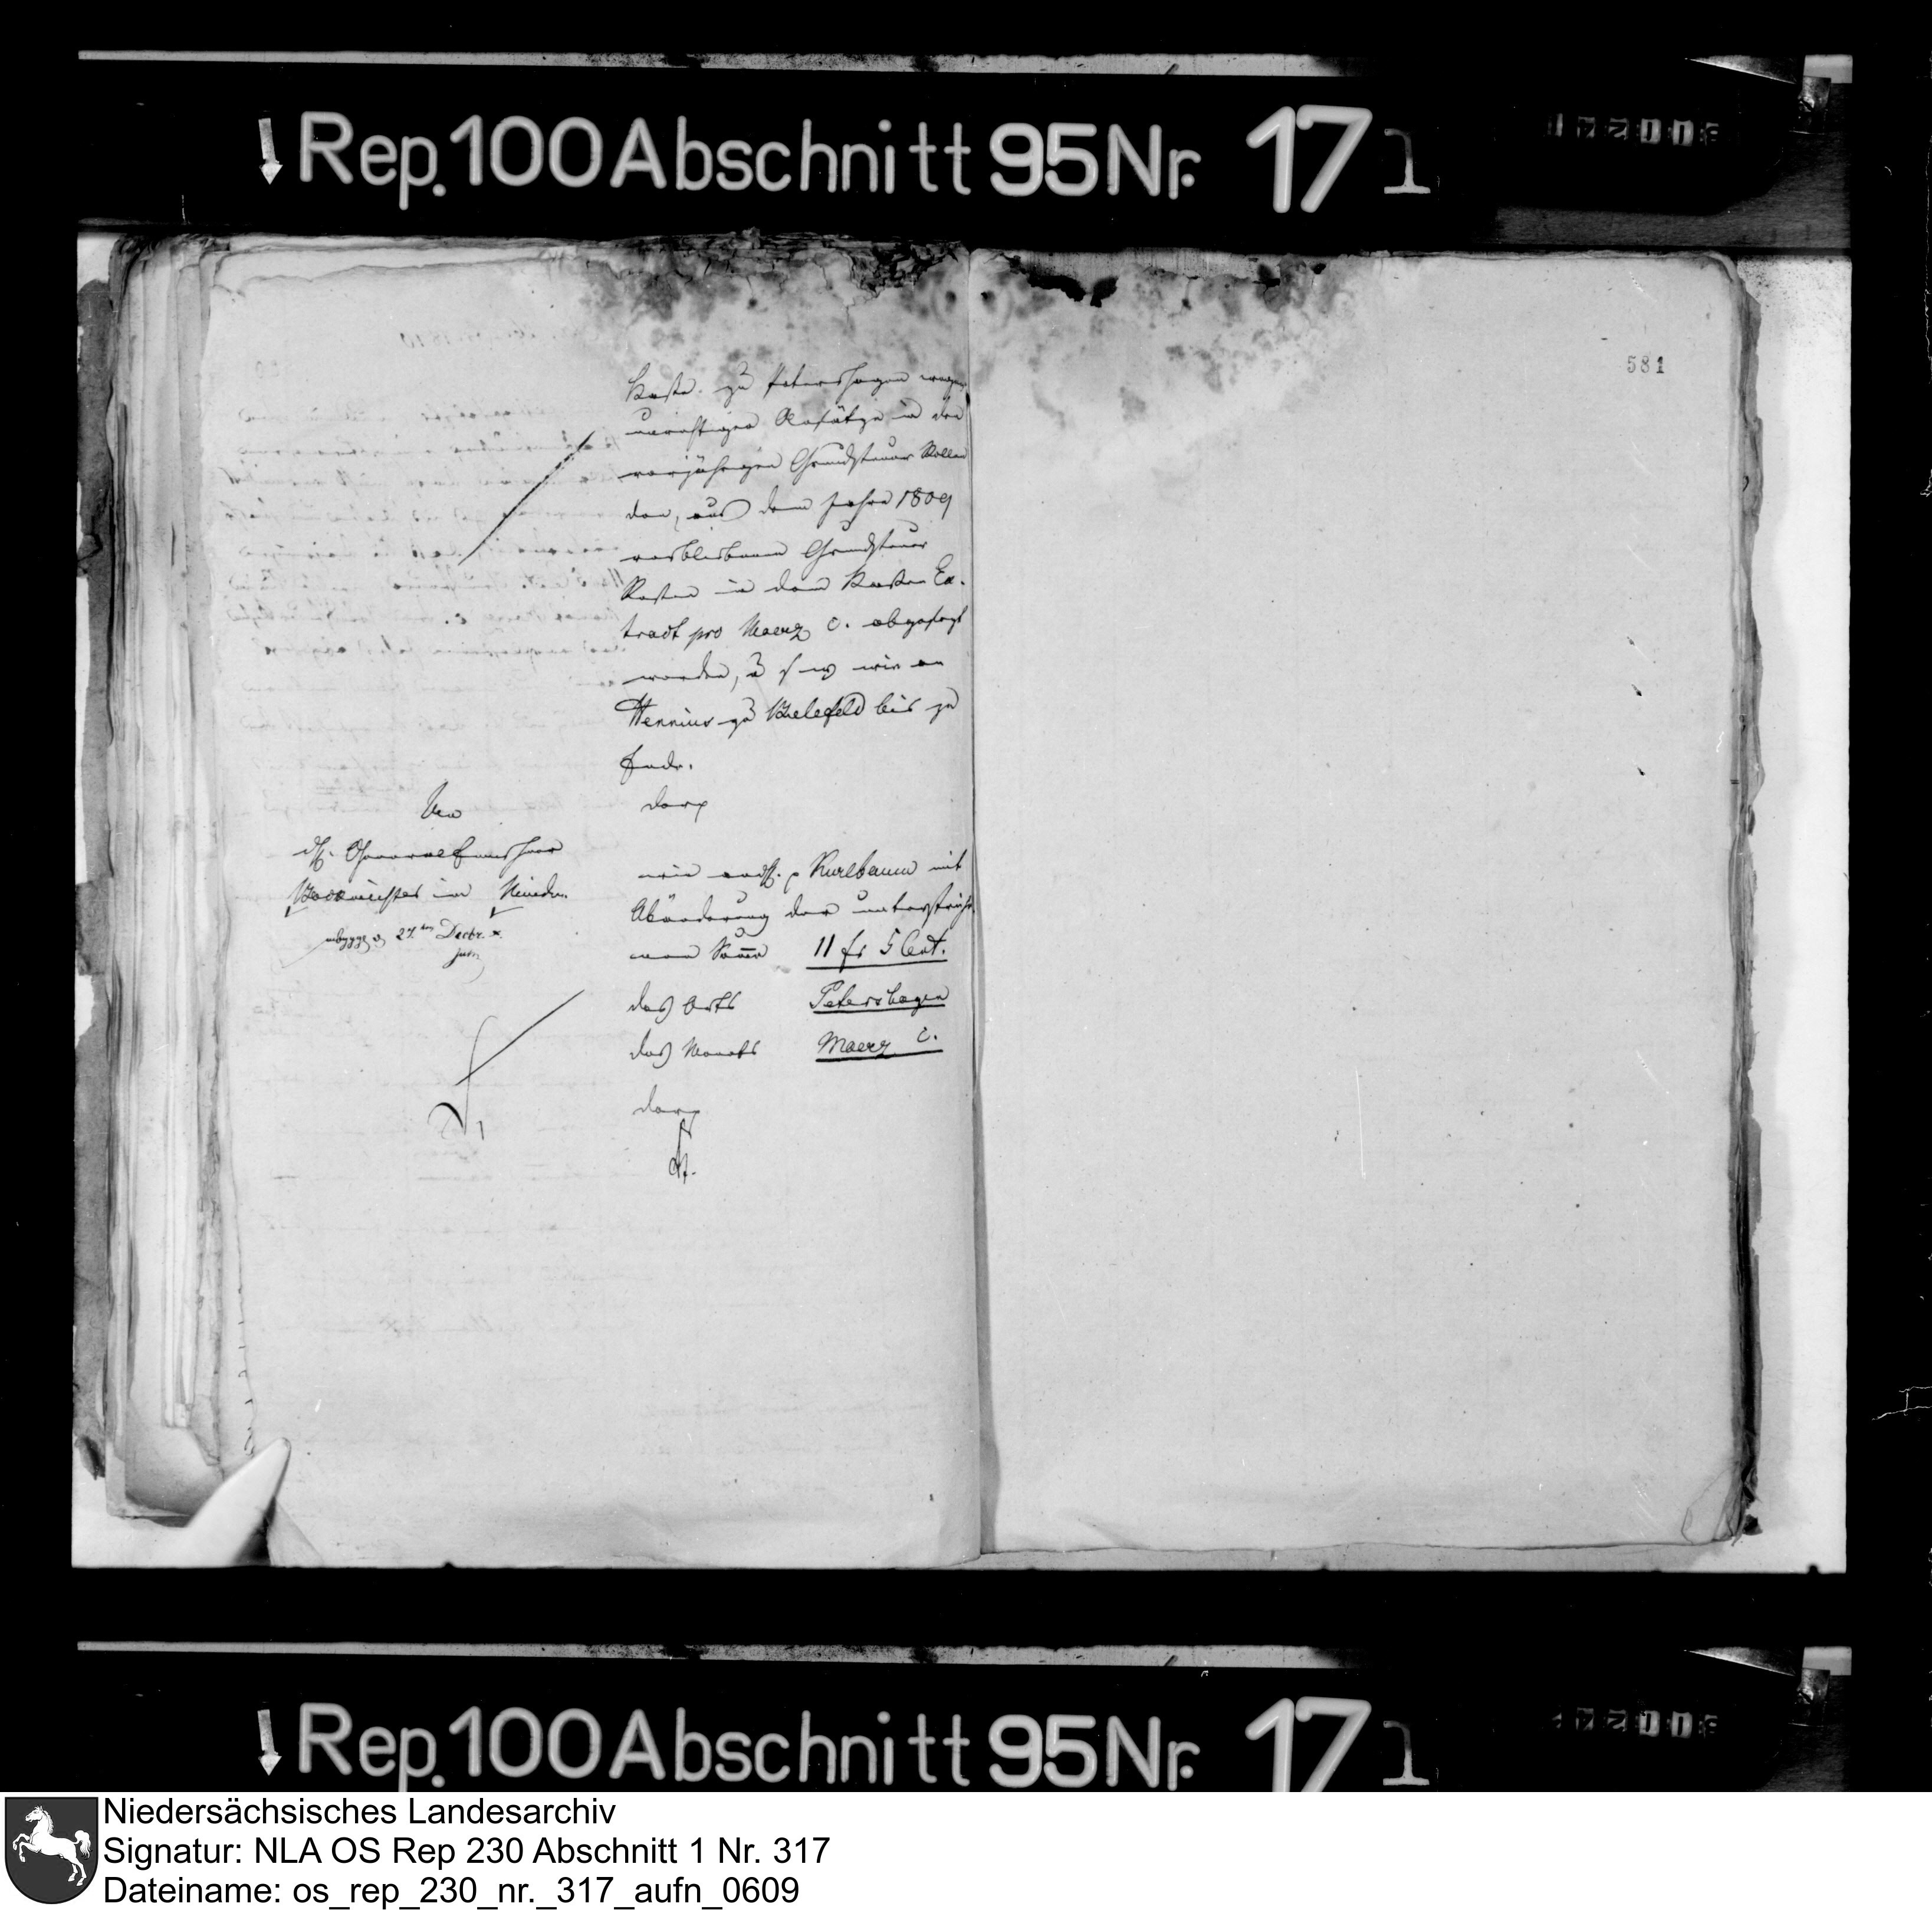 Rep. 100 Abschnitt 95 Nr. 171
581
Kasse. zu Petershagen wegen
unrichtiger Ansätze in den
vorjährigen Grundsteuer Rollen
den, aus dem Jahre 1809
verbliebenen Grundsteuer
Resten in dem Kassen Ex-
tract pro Maerz c. abgesetzt
worden, wie an
Hennius zu Bielefeld bis zu
Ende.
An
General Einnehmer
in Minden.
27ten Decbr.
wie Kurlbaum mit
Abänderung der unterstriche-
nen Summen 11 fr 5 Cent.
des Orts Petershagen
des Monats Maerz c.
Rep. 100 Abschnitt 95 Nr. 171
Niedersächsisches Landesarchiv
Signatur: NLA OS Rep 230 Abschnitt 1 Nr. 317
Dateiname: os_rep_230_nr._317_aufn_0609